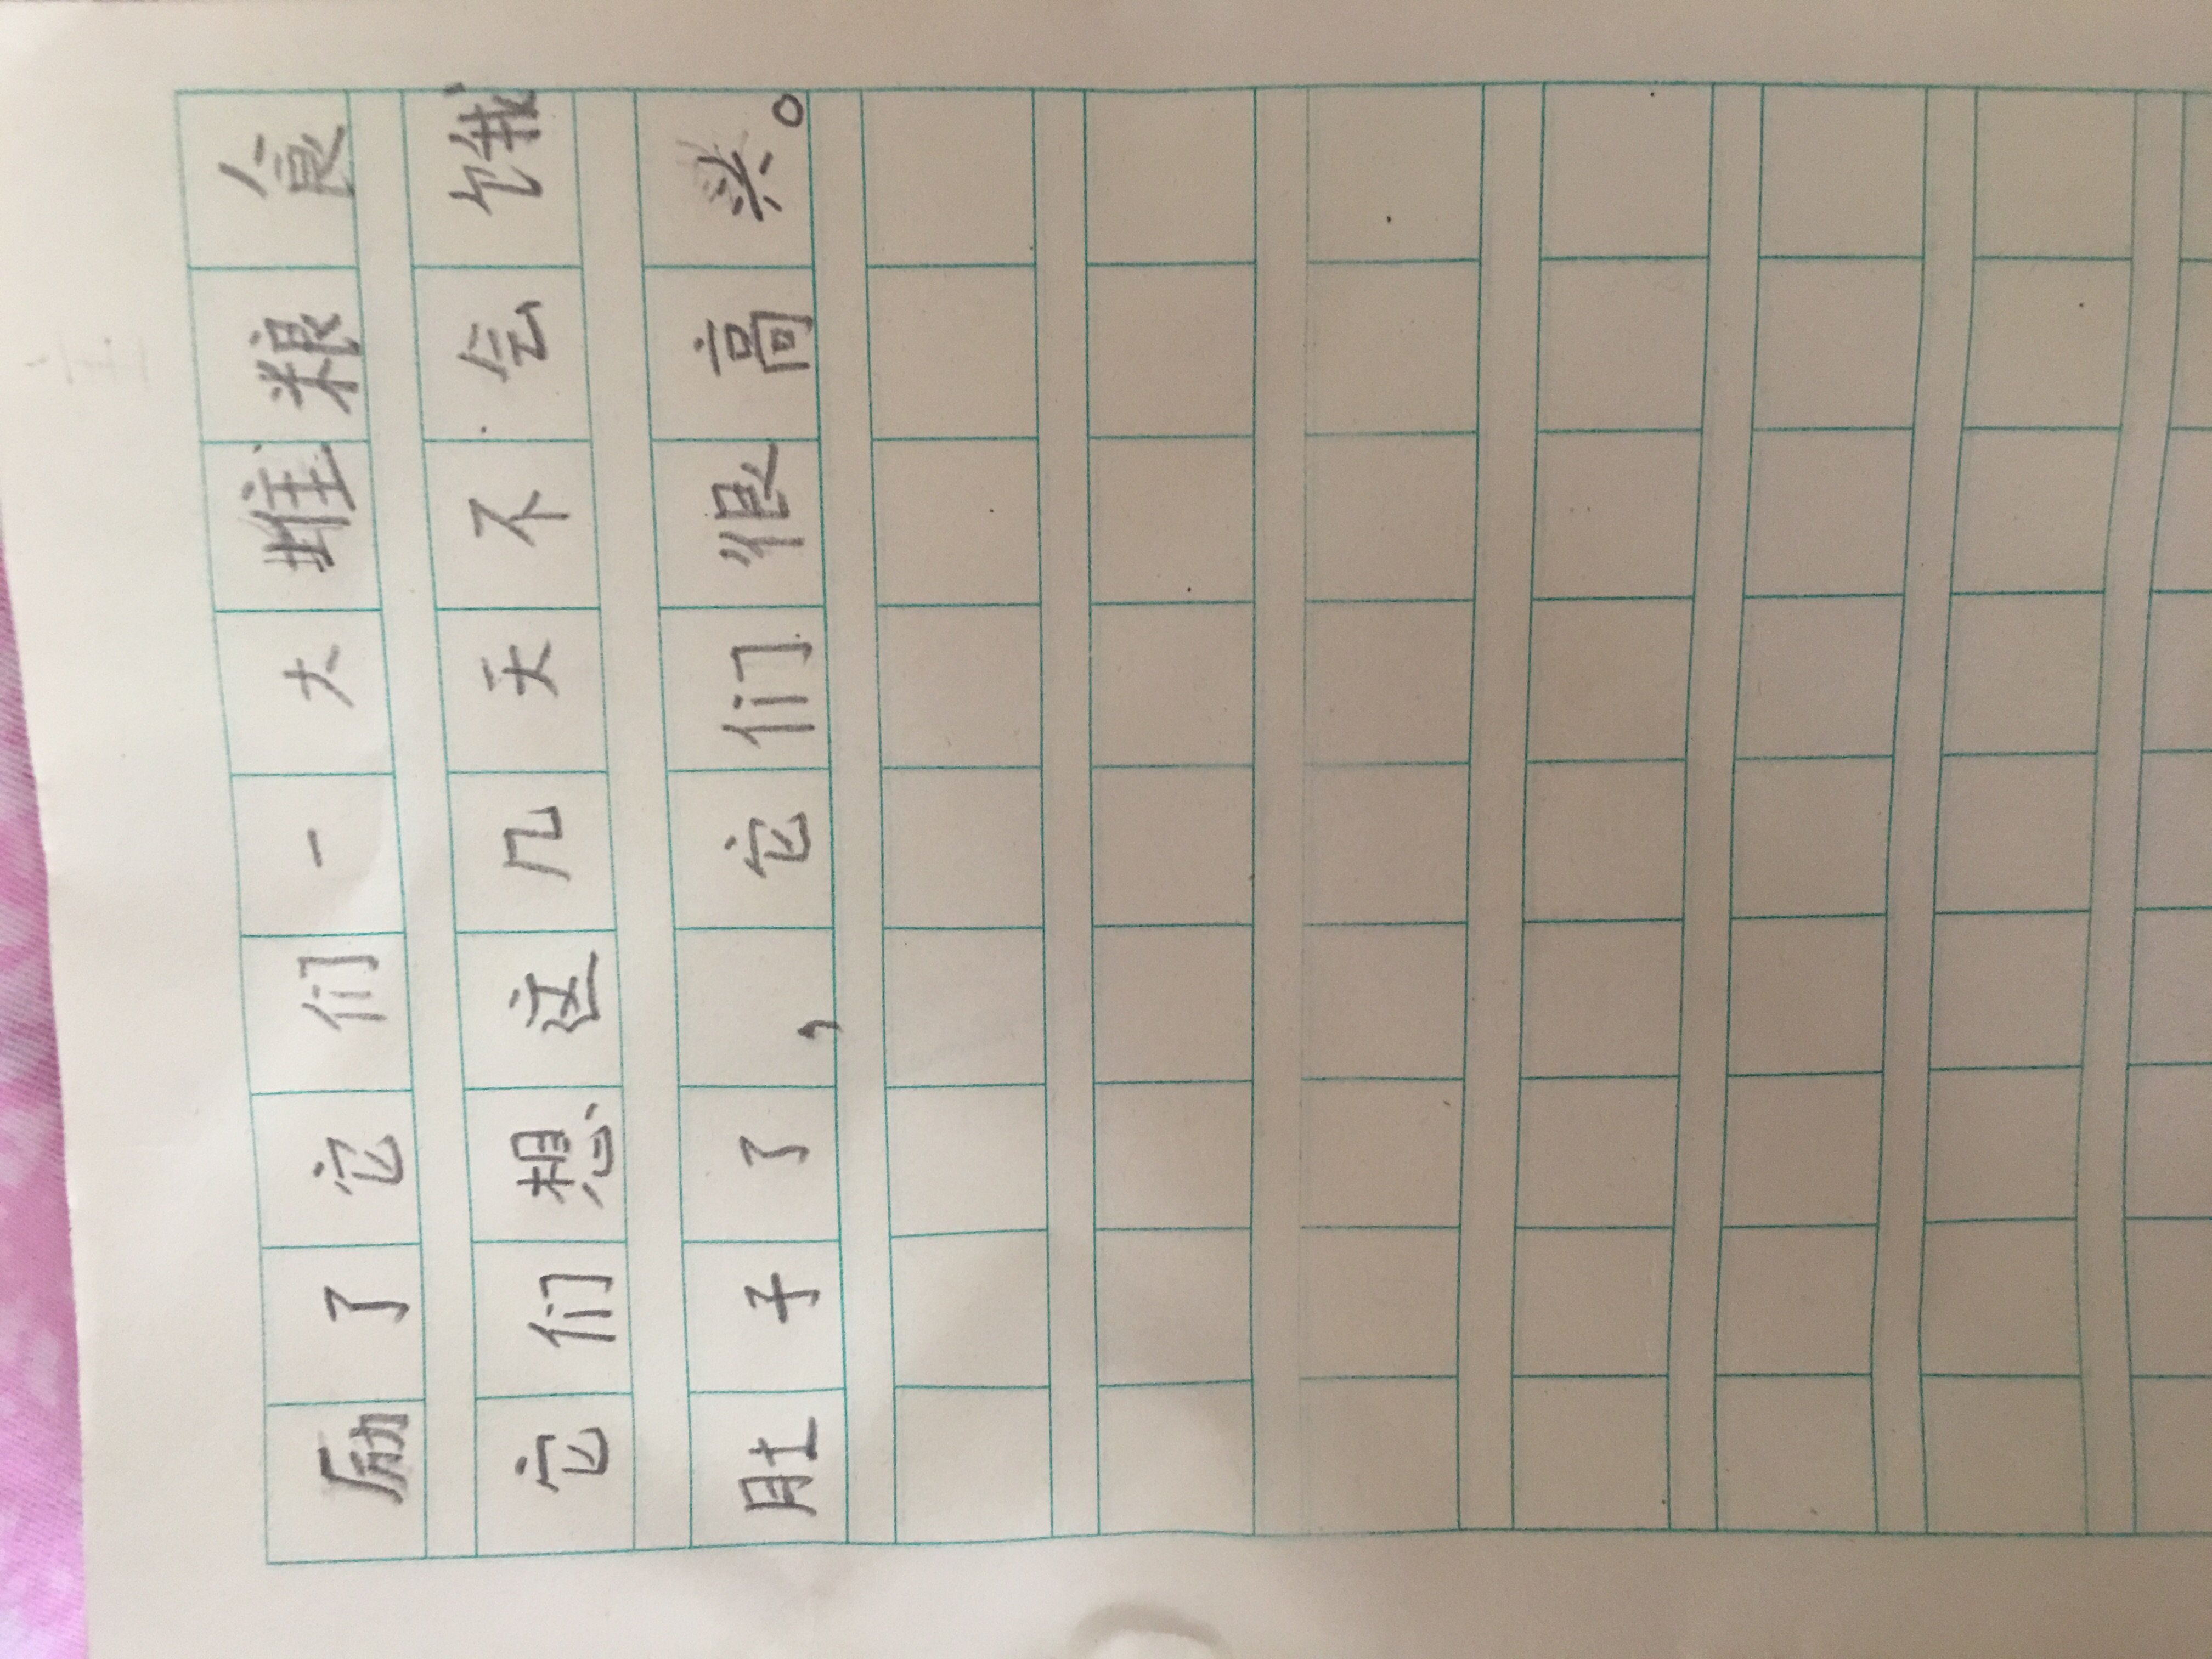 励了它们一大堆粮食
它们想这几天不会饿
肚子了，它们很高兴。